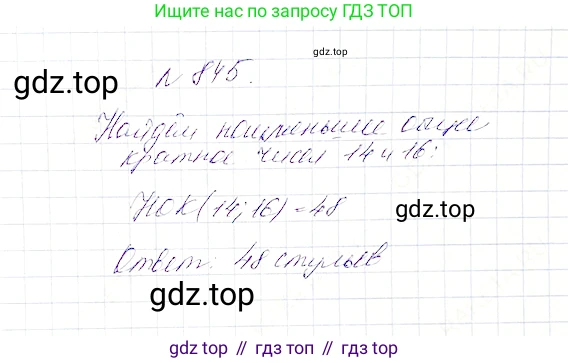 Ищите нас по запросу ГДЗ ТОП
gdz.top
gdz.top
№ 845.
Найдём наименьшее общее
кратное чисел 14 и 16:
НОК(14; 16) = 48
gdz.top
Ответ: 48 стульев
gdz.top
gdz топ // гдз топ // gdz top // гдз топ